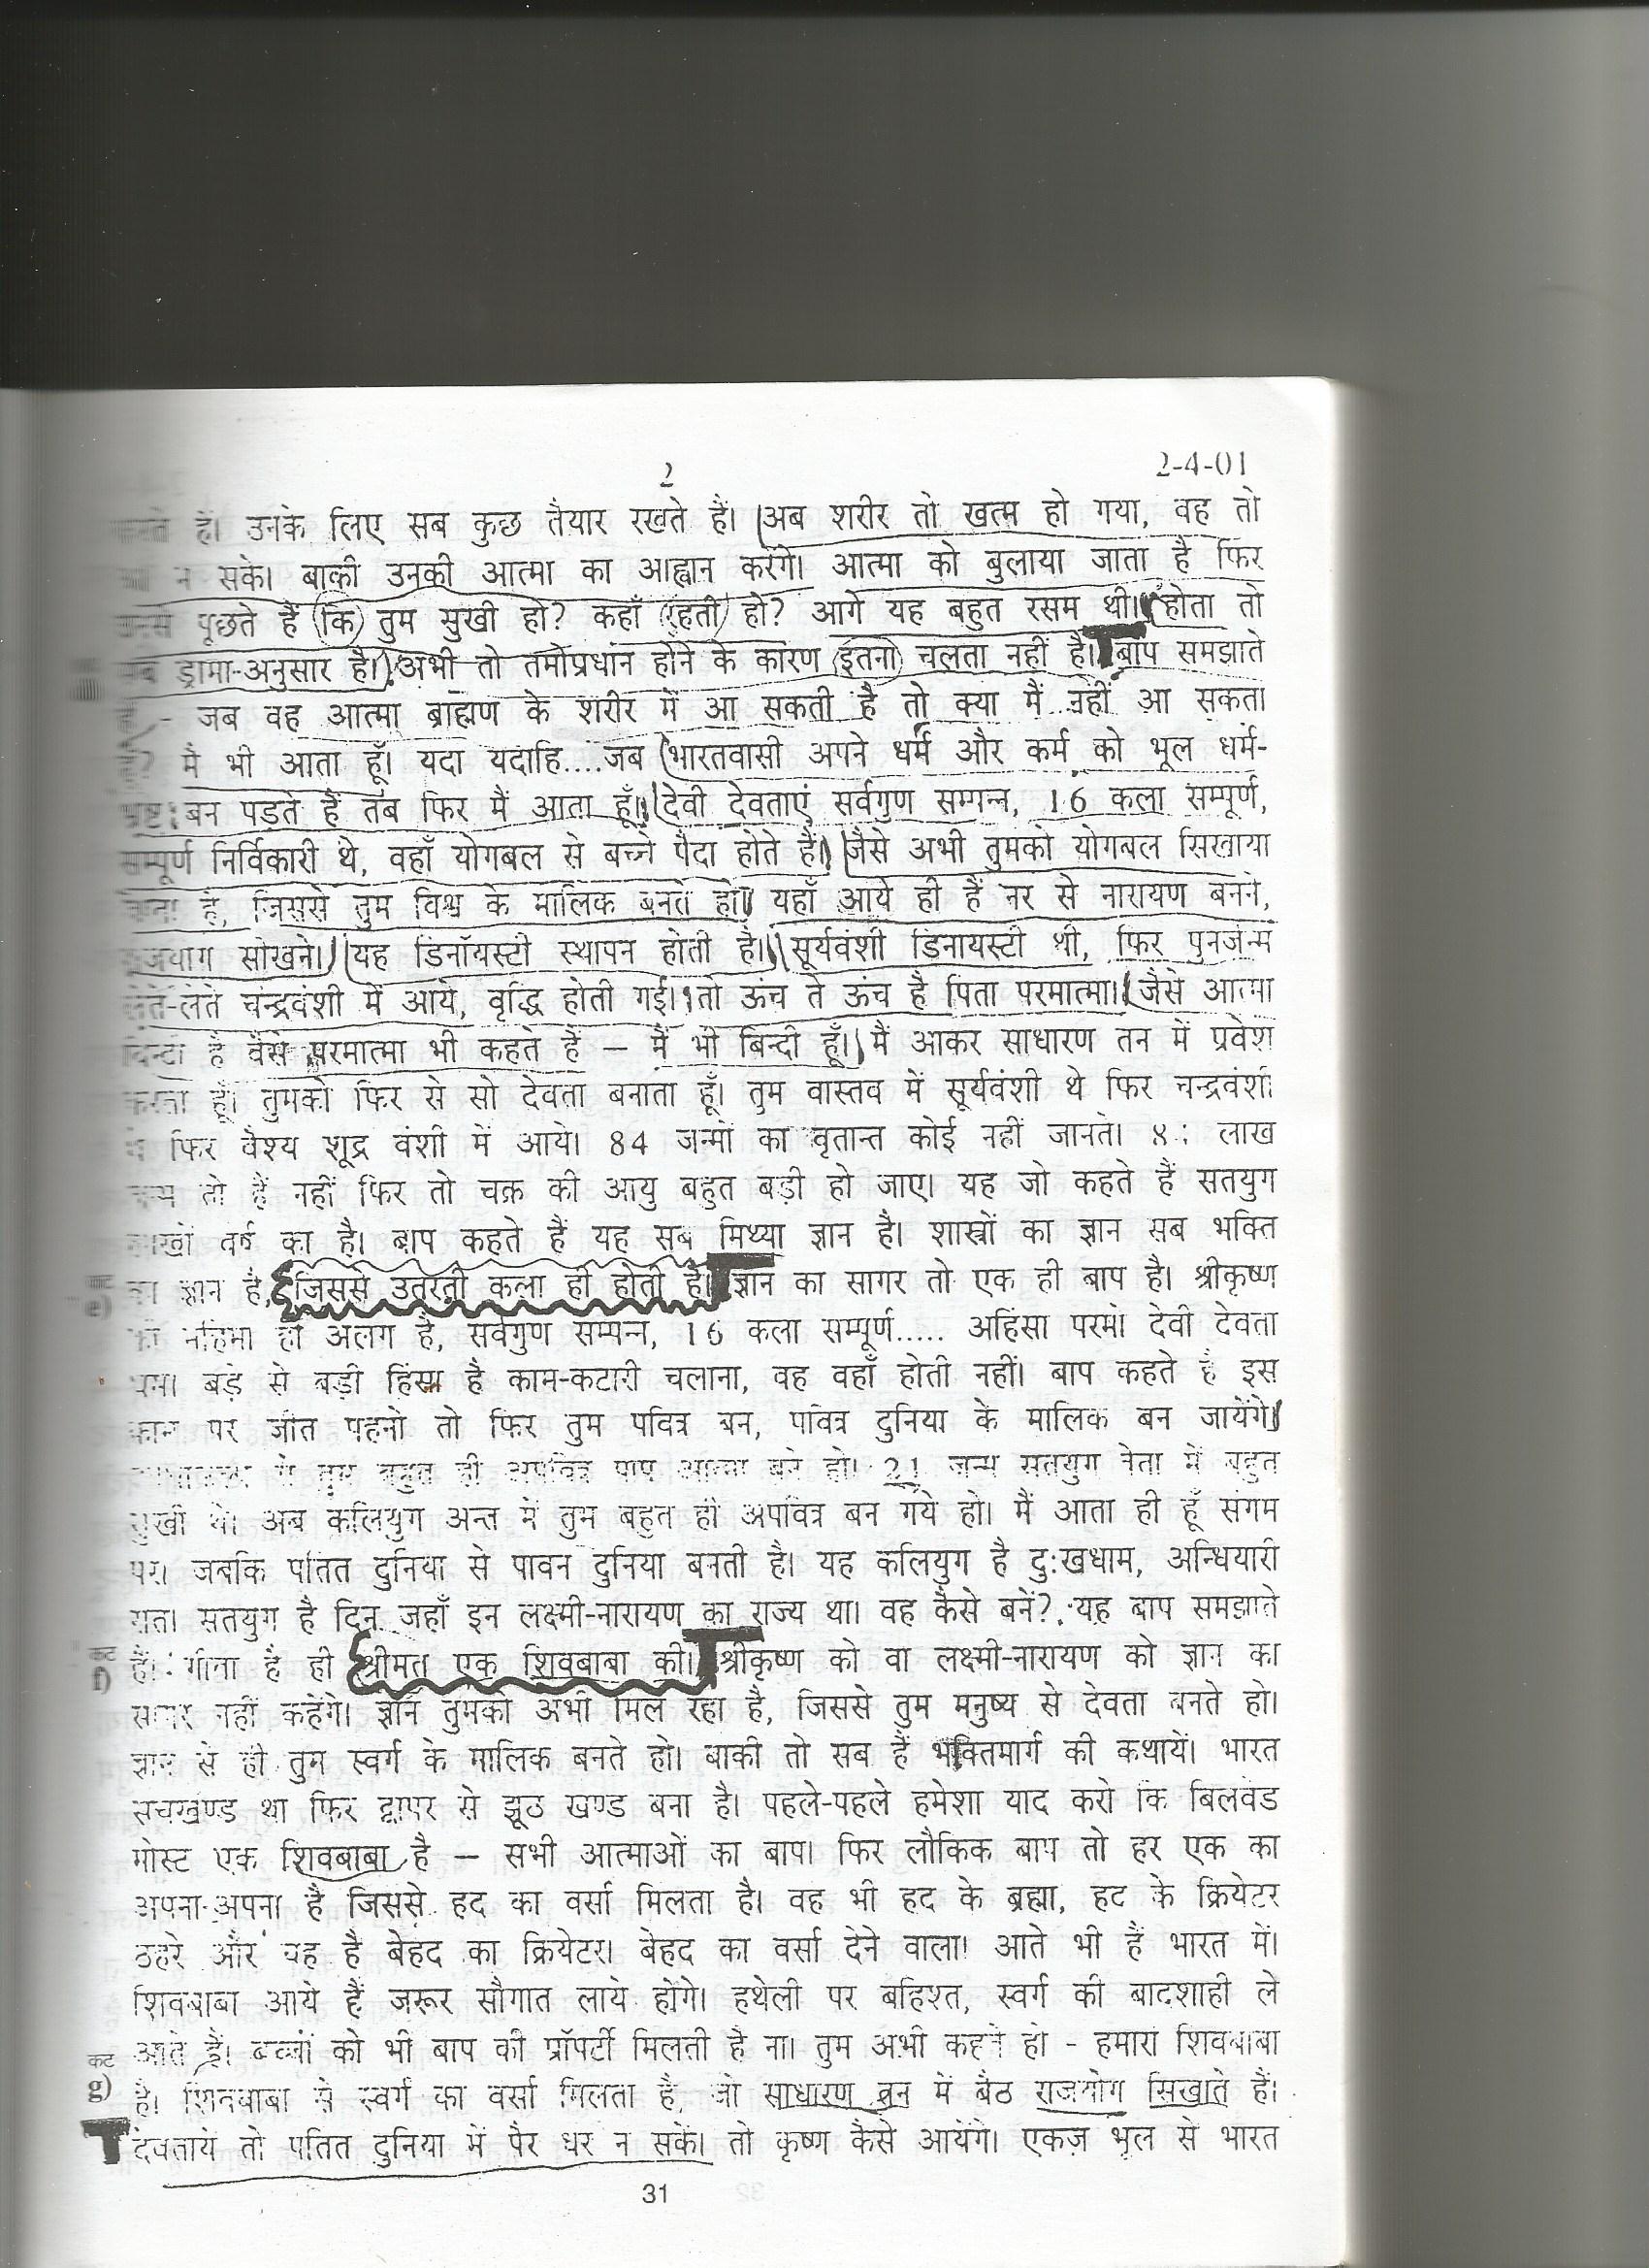 2
2-4-01
हैं। उनके लिए सब कुछ तैयार रखते हैं। अब शरीर तो खत्म हो गया, वह तो
न सके। बाकी उनकी आत्मा का आह्वान करेंगे। आत्मा को बुलाया जाता है फिर
पूछते हैं (कि) तुम सुखी हो? कहाँ (रहती) हो? आगे यह बहुत रसम थी। होता तो
ड्रामा-अनुसार है। अभी तो तमोप्रधान होने के कारण (इतना) चलता नहीं है। बाप समझाते
- जब वह आत्मा ब्राह्मण के शरीर में आ सकती है तो क्या मैं नहीं आ सकता
मैं भी आता हूँ। यदा यदाहि....जब (भारतवासी अपने धर्म और कर्म को भूल धर्म-
भ्रष्ट बन पड़ते हैं तब फिर मैं आता हूँ। (देवी देवताएं सर्वगुण सम्पन्न, 16 कला सम्पूर्ण,
सम्पूर्ण निर्विकारी थे, वहाँ योगबल से बच्चे पैदा होते हैं। (जैसे अभी तुमको योगबल सिखाया
है, जिससे तुम विश्व के मालिक बनते हो। यहाँ आये ही हैं नर से नारायण बनने,
सीखने। (यह डिनॉयस्टी स्थापन होती है।) (सूर्यवंशी डिनायस्टी थी, फिर पुनर्जन्म
लेते-लेते चन्द्रवंशी में आये, वृद्धि होती गई। तो ऊंच ते ऊंच है पिता परमात्मा। (जैसे आत्मा
बिन्दी है वैसे परमात्मा भी कहते हैं — मैं भी बिन्दी हूँ।) मैं आकर साधारण तन में प्रवेश
करता हूँ। तुमको फिर से सो देवता बनाता हूँ। तुम वास्तव में सूर्यवंशी थे फिर चन्द्रवंशी
फिर वैश्य शूद्र वंशी में आये। 84 जन्मों का वृतान्त कोई नहीं जानते। लाख
तो हैं नहीं फिर तो चक्र की आयु बहुत बड़ी हो जाए। यह जो कहते हैं सतयुग
लाखों वर्ष का है। बाप कहते हैं यह सब मिथ्या ज्ञान है। शास्त्रों का ज्ञान सब भक्ति
का ज्ञान है, जिससे उतरती कला ही होती है। ज्ञान का सागर तो एक ही बाप है। श्रीकृष्ण
की महिमा ही अलग है, सर्वगुण सम्पन्न, 16 कला सम्पूर्ण..... अहिंसा परमो देवी देवता
धर्म। बड़े से बड़ी हिंसा है काम-कटारी चलाना, वह वहाँ होती नहीं। बाप कहते है इस
काम पर जीत पहनो तो फिर तुम पवित्र बन, पवित्र दुनिया के मालिक बन जायेंगे।
तुम बहुत ही अपवित्र पाप आत्मा बने हो। 21 जन्म सतयुग त्रेता में बहुत
सुखी थे। अब कलियुग अन्त में तुम बहुत ही अपवित्र बन गये हो। मैं आता ही हूँ संगम
पर। जबकि पतित दुनिया से पावन दुनिया बनती है। यह कलियुग है दुःखधाम, अन्धियारी
रात। सतयुग है दिन जहाँ इन लक्ष्मी-नारायण का राज्य था। वह कैसे बनें? यह बाप समझाते
कट
f)
हैं। गीता है ही श्रीमत एक शिवबाबा की। श्रीकृष्ण को वा लक्ष्मी-नारायण को ज्ञान का
सागर नहीं कहेंगे। ज्ञान तुमको अभी मिल रहा है, जिससे तुम मनुष्य से देवता बनते हो।
ज्ञान से ही तुम स्वर्ग के मालिक बनते हो। बाकी तो सब हैं भक्तिमार्ग की कथायें। भारत
सचखण्ड था फिर द्वापर से झूठ खण्ड बना है। पहले-पहले हमेशा याद करो कि बिलवेड
मोस्ट एक शिवबाबा है — सभी आत्माओं का बाप। फिर लौकिक बाप तो हर एक का
अपना-अपना है जिससे हद का वर्सा मिलता है। वह भी हद के ब्रह्मा, हद के क्रियेटर
ठहरे और यह है बेहद का क्रियेटर। बेहद का वर्सा देने वाला। आते भी हैं भारत में।
शिवबाबा आये हैं जरूर सौगात लाये होंगे। हथेली पर बहिश्त, स्वर्ग की बादशाही ले
आते हैं। बच्चों को भी बाप की प्रॉपर्टी मिलती है ना। तुम अभी कहते हो - हमारा शिवबाबा
कट
g)
है। शिवबाबा से स्वर्ग का वर्सा मिलता है, जो साधारण तन में बैठ राजयोग सिखाते हैं।
देवतायें तो पतित दुनिया में पैर धर न सकें। तो कृष्ण कैसे आयेंगे। एकज़ भूल से भारत
31